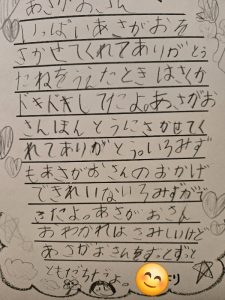 あさがおさん
いっぱいあさがおを
さかせてくれてありがとう
たねをうえたときはさくか
ドキドキしてたよ。あさがお
さんほんとうにさかせてく
れてありがとう。いろみず
もあさがおさんのおかげ
できれいないろみずがで
きたよ。あさがおさん
おわかれはさみしいけど
あさがおさんをずっとずっと
ともだちだよ。
より